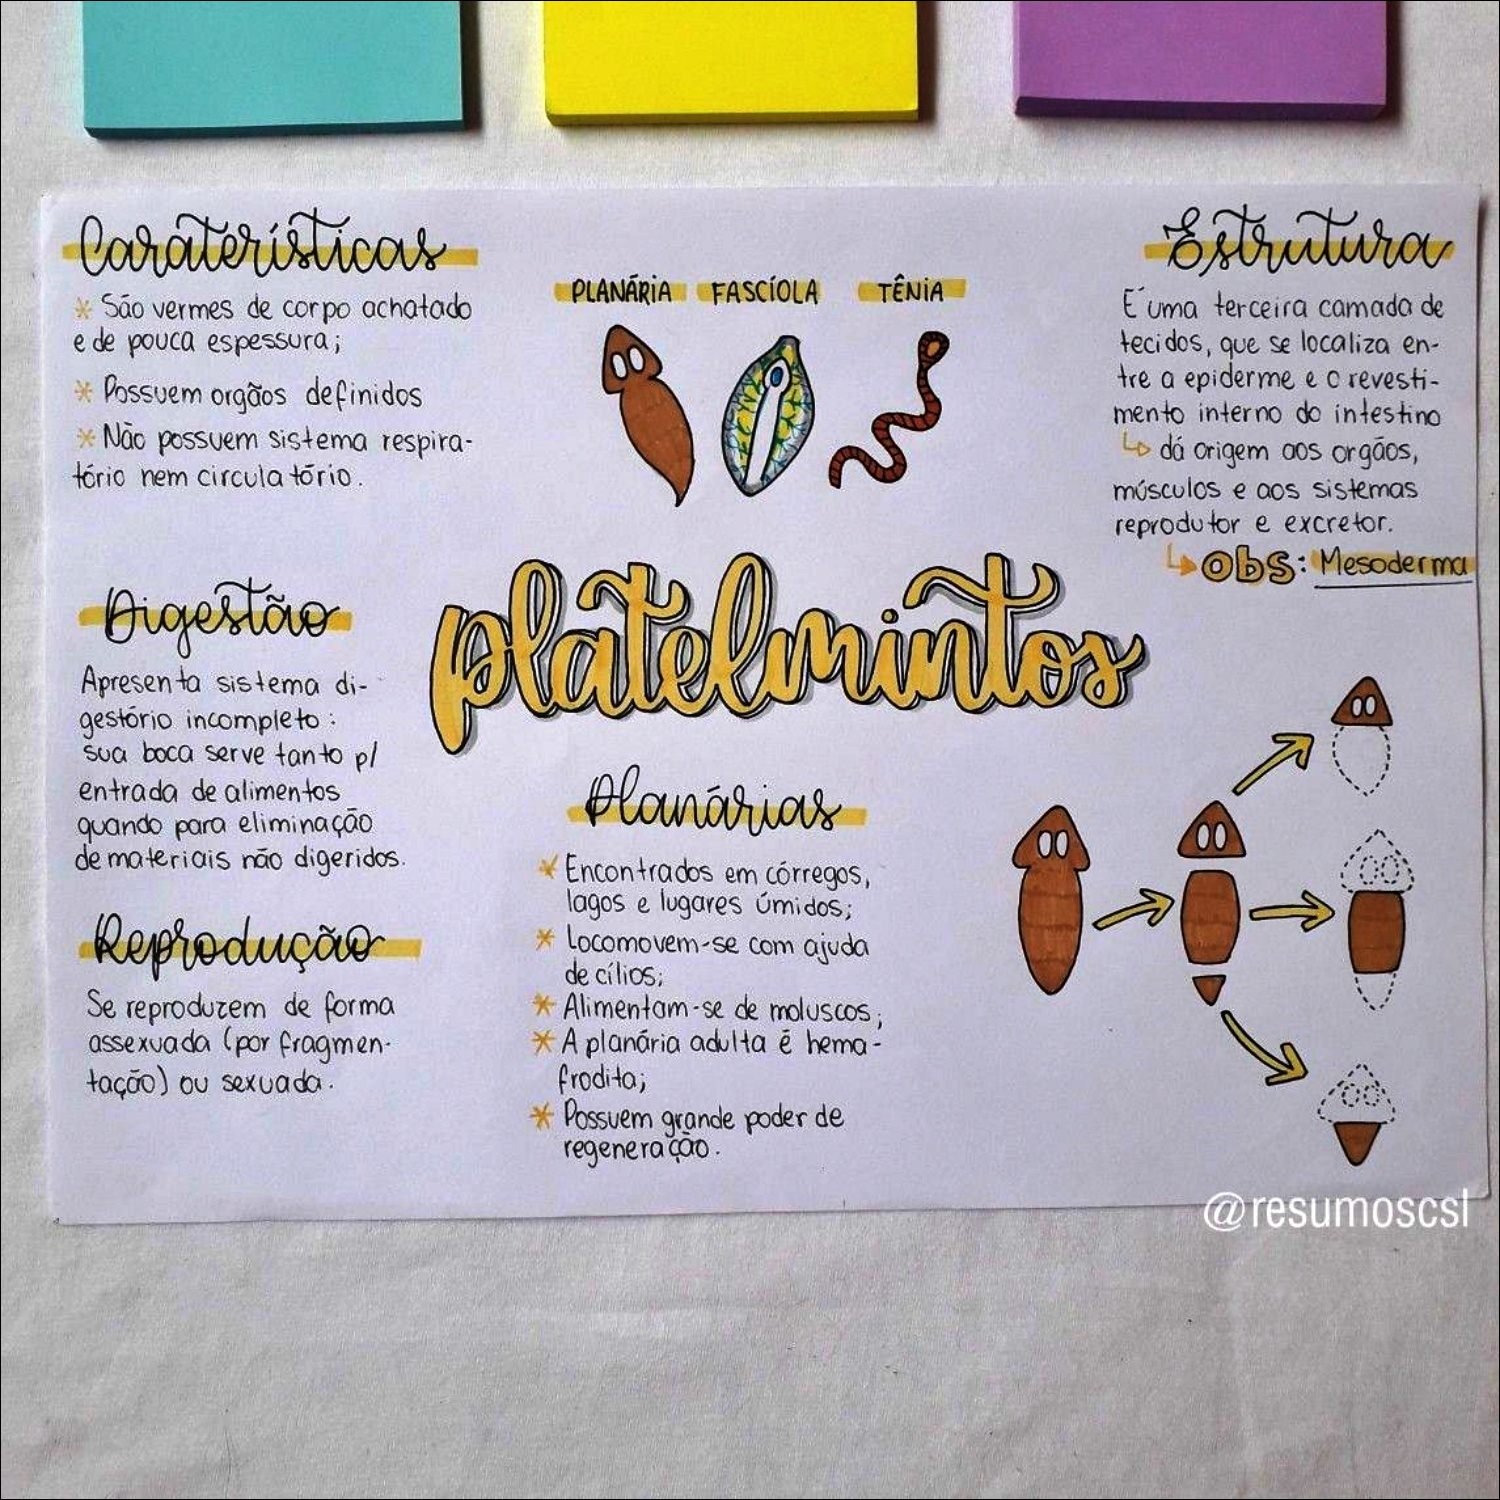 Caraterísticas
* São vermes de corpo achatado
e de pouca espessura;
* Possuem orgãos definidos
* Não possuem sistema respira-
tório nem circulatório.
PLANÁRIA FASCÍOLA TÊNIA
Estrutura
É uma terceira camada de
tecidos, que se localiza en-
tre a epiderme e o revesti-
mento interno do intestino
↳ dá origem aos orgãos,
músculos e aos sistemas
reprodutor e excretor.
↳ obs: Mesoderma
Platelmintos
Digestão
Apresenta sistema di-
gestório incompleto:
sua boca serve tanto p/
entrada de alimentos
quando para eliminação
de materiais não digeridos.
Reprodução
Se reproduzem de forma
assexuada (por fragmen-
tação) ou sexuada.
Planárias
* Encontrados em córregos,
lagos e lugares úmidos;
* Locomovem-se com ajuda
de cílios;
* Alimentam-se de moluscos;
* A planária adulta é hema-
frodita;
* Possuem grande poder de
regeneração.
@resumoscsl